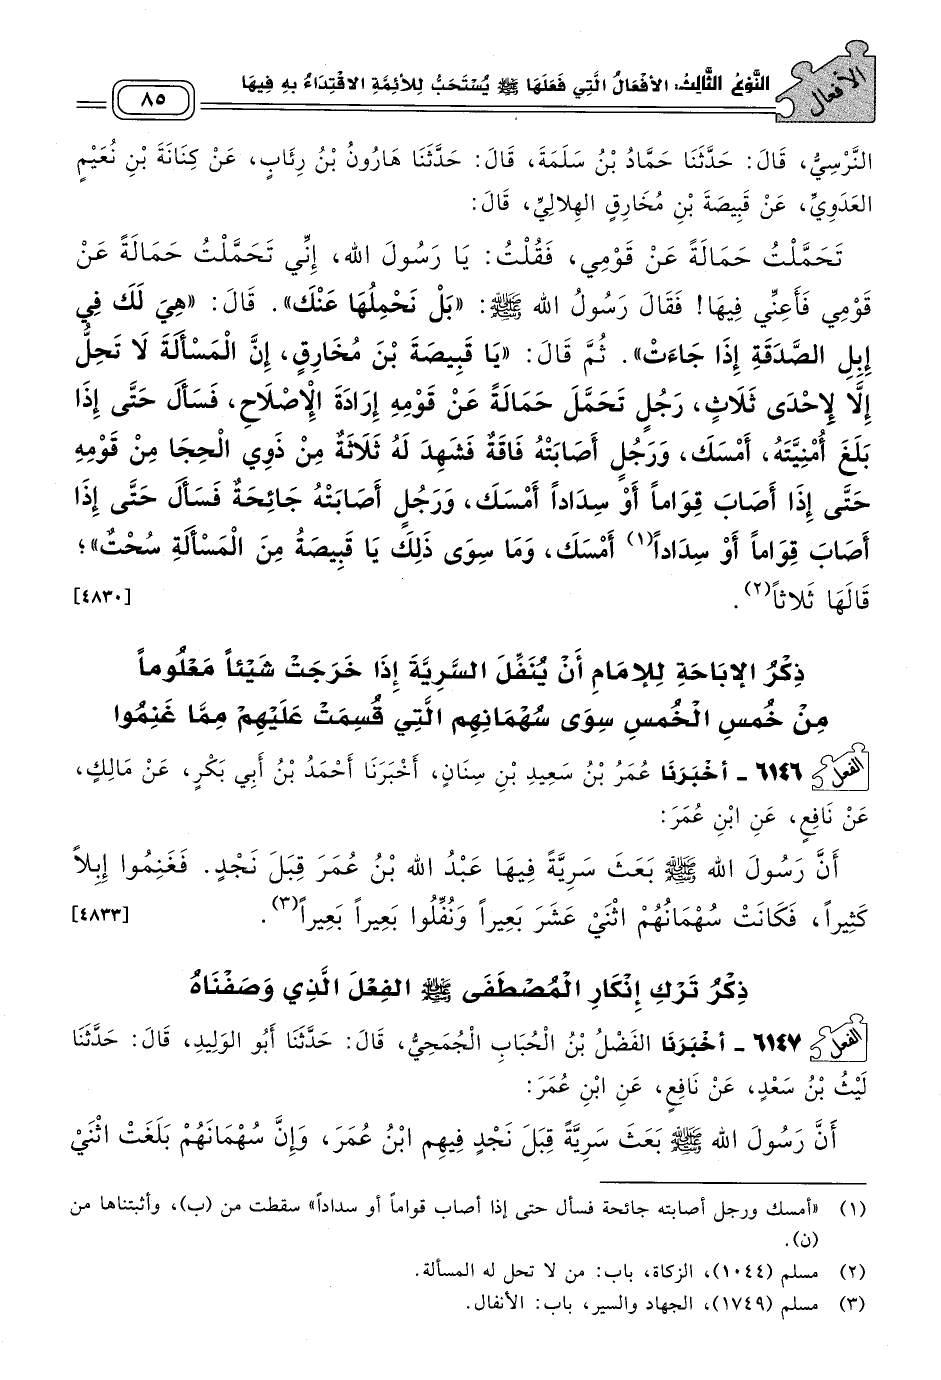 الأفعال
النَّوْعُ الثَّالِثُ: الأَفْعَالُ الَّتِي فَعَلَهَا ﷺ يُسْتَحَبُّ لِلأَئِمَّةِ الاقْتِدَاءُ بِهِ فِيهَا
٨٥
النَّرْسِيُّ، قَالَ: حَدَّثَنَا حَمَّادُ بْنُ سَلَمَةَ، قَالَ: حَدَّثَنَا هَارُونُ بْنُ رِئَابٍ، عَنْ كِنَانَةَ بْنِ نُعَيْمٍ
العَدَوِيِّ، عَنْ قَبِيصَةَ بْنِ مُخَارِقٍ الهِلالِيِّ، قَالَ:
تَحَمَّلْتُ حَمَالَةً عَنْ قَوْمِي، فَقُلْتُ: يَا رَسُولَ الله، إِنِّي تَحَمَّلْتُ حَمَالَةً عَنْ
قَوْمِي فَأَعِنِّي فِيهَا! فَقَالَ رَسُولُ الله ﷺ: «بَلْ نَحْمِلُهَا عَنْكَ». قَالَ: «هِيَ لَكَ فِي
إِبِلِ الصَّدَقَةِ إِذَا جَاءَتْ». ثُمَّ قَالَ: «يَا قَبِيصَةَ بْنَ مُخَارِقٍ، إِنَّ الْمَسْأَلَةَ لَا تَحِلُّ
إِلَّا لِإِحْدَى ثَلَاثٍ، رَجُلٍ تَحَمَّلَ حَمَالَةً عَنْ قَوْمِهِ إِرَادَةَ الْإِصْلَاحِ، فَسَأَلَ حَتَّى إِذَا
بَلَغَ أُمْنِيَّتَهُ، أَمْسَكَ، وَرَجُلٍ أَصَابَتْهُ فَاقَةٌ فَشَهِدَ لَهُ ثَلَاثَةٌ مِنْ ذَوِي الْحِجَا مِنْ قَوْمِهِ
حَتَّى إِذَا أَصَابَ قِوَاماً أَوْ سِدَاداً أَمْسَكَ، وَرَجُلٍ أَصَابَتْهُ جَائِحَةٌ فَسَأَلَ حَتَّى إِذَا
أَصَابَ قِوَاماً أَوْ سِدَاداً(١) أَمْسَكَ، وَمَا سِوَى ذَلِكَ يَا قَبِيصَةُ مِنَ الْمَسْأَلَةِ سُحْتٌ»؛
قَالَهَا ثَلاثاً(٢). [٤٨٣٠]
ذِكْرُ الإِبَاحَةِ لِلإِمَامِ أَنْ يُنَفِّلَ السَّرِيَّةَ إِذَا خَرَجَتْ شَيْئاً مَعْلُوماً
مِنْ خُمسِ الْخُمسِ سِوَى سُهْمَانِهِم الَّتِي قُسِمَتْ عَلَيْهِمْ مِمَّا غَنِمُوا
الفعل ٦١٤٦ - أَخْبَرَنَا عُمَرُ بْنُ سَعِيدِ بْنِ سِنَانٍ، أَخْبَرَنَا أَحْمَدُ بْنُ أَبِي بَكْرٍ، عَنْ مَالِكٍ،
عَنْ نَافِعٍ، عَنِ ابْنِ عُمَرَ:
أَنَّ رَسُولَ الله ﷺ بَعَثَ سَرِيَّةً فِيهَا عَبْدُ الله بْنُ عُمَرَ قِبَلَ نَجْدٍ. فَغَنِمُوا إِبِلاً
كَثِيراً، فَكَانَتْ سُهْمَانُهُمْ اثْنَيْ عَشَرَ بَعِيراً وَنُفِّلُوا بَعِيراً بَعِيراً(٣). [٤٨٣٣]
ذِكْرُ تَرْكِ إِنْكَارِ الْمُصْطَفَى ﷺ الفِعْلَ الَّذِي وَصَفْنَاهُ
الفعل ٦١٤٧ - أَخْبَرَنَا الفَضْلُ بْنُ الْحُبَابِ الْجُمَحِيُّ، قَالَ: حَدَّثَنَا أَبُو الوَلِيدِ، قَالَ: حَدَّثَنَا
لَيْثُ بْنُ سَعْدٍ، عَنْ نَافِعٍ، عَنِ ابْنِ عُمَرَ:
أَنَّ رَسُولَ الله ﷺ بَعَثَ سَرِيَّةً قِبَلَ نَجْدٍ فِيهِم ابْنُ عُمَرَ، وَإِنَّ سُهْمَانَهُمْ بَلَغَتْ اثْنَيْ
(١) «أمسك ورجل أصابته جائحة فسأل حتى إذا أصاب قواماً أو سداداً» سقطت من (ب)، وأثبتناها من
(ن).
(٢) مسلم (١٠٤٤)، الزكاة، باب: من لا تحل له المسألة.
(٣) مسلم (١٧٤٩)، الجهاد والسير، باب: الأنفال.